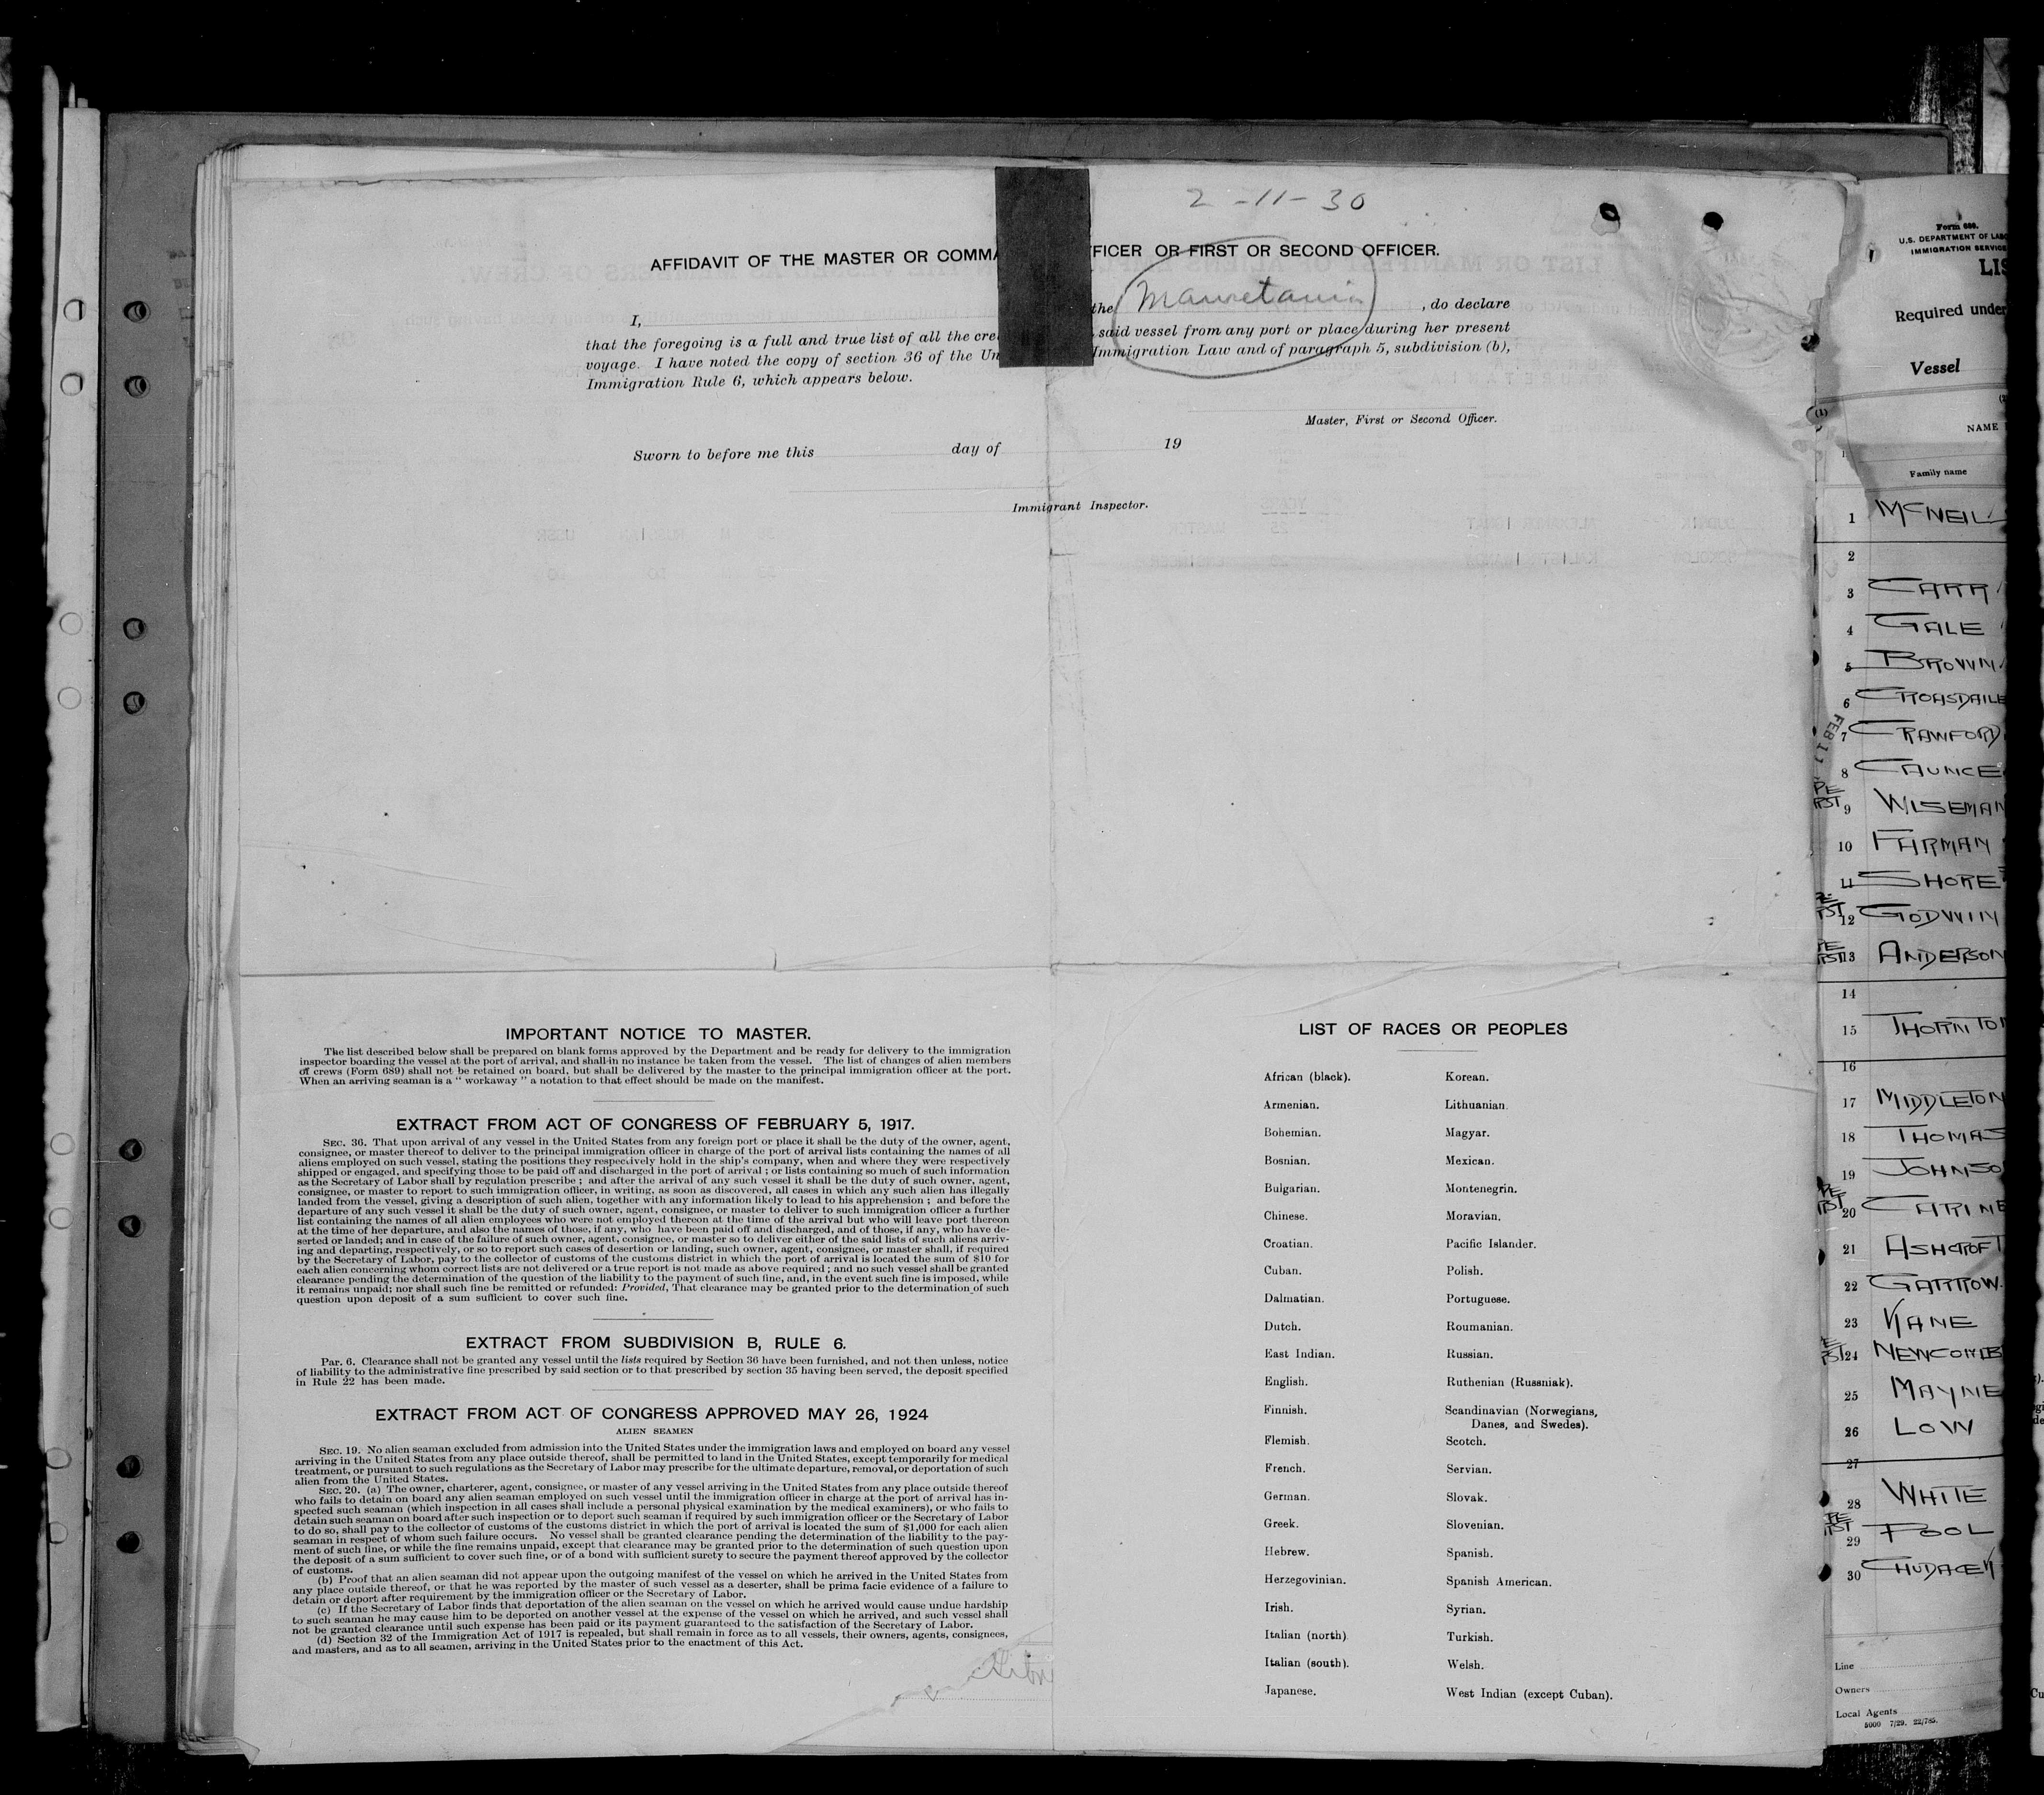 2-11-30
AFFIDAVIT OF THE MASTER OR COMMA FICER OR FIRST OR SECOND OFFICER.
I, the Mauretania, do declare
that the foregoing is a full and true list of all the cre said vessel from any port or place during her present
voyage. I have noted the copy of section 36 of the Un Immigration Law and of paragraph 5, subdivision (b),
Immigration Rule 6, which appears below.
Master, First or Second Officer.
Sworn to before me this day of 19
Immigrant Inspector.
IMPORTANT NOTICE TO MASTER.
The list described below shall be prepared on blank forms approved by the Department and be ready for delivery to the immigration
inspector boarding the vessel at the port of arrival, and shall in no instance be taken from the vessel. The list of changes of alien members
of crews (Form 689) shall not be retained on board, but shall be delivered by the master to the principal immigration officer at the port.
When an arriving seaman is a " workaway " a notation to that effect should be made on the manifest.
EXTRACT FROM ACT OF CONGRESS OF FEBRUARY 5, 1917.
SEC. 36. That upon arrival of any vessel in the United States from any foreign port or place it shall be the duty of the owner, agent,
consignee, or master thereof to deliver to the principal immigration officer in charge of the port of arrival lists containing the names of all
aliens employed on such vessel, stating the positions they respectively hold in the ship's company, when and where they were respectively
shipped or engaged, and specifying those to be paid off and discharged in the port of arrival ; or lists containing so much of such information
as the Secretary of Labor shall by regulation prescribe ; and after the arrival of any such vessel it shall be the duty of such owner, agent,
consignee, or master to report to such immigration officer, in writing, as soon as discovered, all cases in which any such alien has illegally
landed from the vessel, giving a description of such alien, together with any information likely to lead to his apprehension ; and before the
departure of any such vessel it shall be the duty of such owner, agent, consignee, or master to deliver to such immigration officer a further
list containing the names of all alien employees who were not employed thereon at the time of the arrival but who will leave port thereon
at the time of her departure, and also the names of those, if any, who have been paid off and discharged, and of those, if any, who have de-
serted or landed; and in case of the failure of such owner, agent, consignee, or master so to deliver either of the said lists of such aliens arriv-
ing and departing, respectively, or so to report such cases of desertion or landing, such owner, agent, consignee, or master shall, if required
by the Secretary of Labor, pay to the collector of customs of the customs district in which the port of arrival is located the sum of $10 for
each alien concerning whom correct lists are not delivered or a true report is not made as above required ; and no such vessel shall be granted
clearance pending the determination of the question of the liability to the payment of such fine, and, in the event such fine is imposed, while
it remains unpaid; nor shall such fine be remitted or refunded: Provided, That clearance may be granted prior to the determination of such
question upon deposit of a sum sufficient to cover such fine.
EXTRACT FROM SUBDIVISION B, RULE 6.
Par. 6. Clearance shall not be granted any vessel until the lists required by Section 36 have been furnished, and not then unless, notice
of liability to the administrative fine prescribed by said section or to that prescribed by section 35 having been served, the deposit specified
in Rule 22 has been made.
EXTRACT FROM ACT OF CONGRESS APPROVED MAY 26, 1924
ALIEN SEAMEN
SEC. 19. No alien seaman excluded from admission into the United States under the immigration laws and employed on board any vessel
arriving in the United States from any place outside thereof, shall be permitted to land in the United States, except temporarily for medical
treatment, or pursuant to such regulations as the Secretary of Labor may prescribe for the ultimate departure, removal, or deportation of such
alien from the United States.
SEC. 20. (a) The owner, charterer, agent, consignee, or master of any vessel arriving in the United States from any place outside thereof
who fails to detain on board any alien seaman employed on such vessel until the immigration officer in charge at the port of arrival has in-
spected such seaman (which inspection in all cases shall include a personal physical examination by the medical examiners), or who fails to
detain such seaman on board after such inspection or to deport such seaman if required by such immigration officer or the Secretary of Labor
to do so, shall pay to the collector of customs of the customs district in which the port of arrival is located the sum of $1,000 for each alien
seaman in respect of whom such failure occurs. No vessel shall be granted clearance pending the determination of the liability to the pay-
ment of such fine, or while the fine remains unpaid, except that clearance may be granted prior to the determination of such question upon
the deposit of a sum sufficient to cover such fine, or of a bond with sufficient surety to secure the payment thereof approved by the collector
of customs.
(b) Proof that an alien seaman did not appear upon the outgoing manifest of the vessel on which he arrived in the United States from
any place outside thereof, or that he was reported by the master of such vessel as a deserter, shall be prima facie evidence of a failure to
detain or deport after requirement by the immigration officer or the Secretary of Labor.
(c) If the Secretary of Labor finds that deportation of the alien seaman on the vessel on which he arrived would cause undue hardship
to such seaman he may cause him to be deported on another vessel at the expense of the vessel on which he arrived, and such vessel shall
not be granted clearance until such expense has been paid or its payment guaranteed to the satisfaction of the Secretary of Labor.
(d) Section 32 of the Immigration Act of 1917 is repealed, but shall remain in force as to all vessels, their owners, agents, consignees,
and masters, and as to all seamen, arriving in the United States prior to the enactment of this Act.
LIST OF RACES OR PEOPLES
African (black). Korean.
Armenian. Lithuanian.
Bohemian. Magyar.
Bosnian. Mexican.
Bulgarian. Montenegrin.
Chinese. Moravian.
Croatian. Pacific Islander.
Cuban. Polish.
Dalmatian. Portuguese.
Dutch. Roumanian.
East Indian. Russian.
English. Ruthenian (Russniak).
Finnish. Scandinavian (Norwegians,
Danes, and Swedes).
Flemish. Scotch.
French. Servian.
German. Slovak.
Greek. Slovenian.
Hebrew. Spanish.
Herzegovinian. Spanish American.
Irish. Syrian.
Italian (north) Turkish.
Italian (south). Welsh.
Japanese. West Indian (except Cuban).
Form 680.
U.S. DEPARTMENT OF LABO
IMMIGRATION SERVICE
LIS
Required under
Vessel
(1)
NAME
Family name
1 McNEIL
2
3 CARR
4 GALE
5 BROWN
6 CROASDAILE
FEB 11
7 CRAWFORD
8 CAUNCE
9 WISEMAN
10 FARMAN
11 SHORE
12 GODWIN
13 ANDERSON
14
15 THORNTON
16
17 MIDDLETON
18 THOMAS
19 JOHNSO
20 CARINE
21 ASHCROFT
22 GARROW
23 KANE
24 NEWCOMB
25 MAYNE
26 LOW
27
28 WHITE
29 POOL
30
Line
Owners
Local Agents
5000 7/29. 22/785.